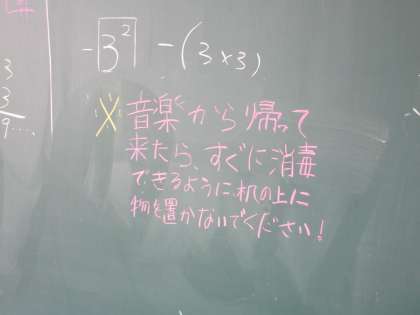 -3² -(3×3)
3
3
9....
※音楽から帰って
来たら、すぐに消毒
できるように机の上に
物を置かないでください!